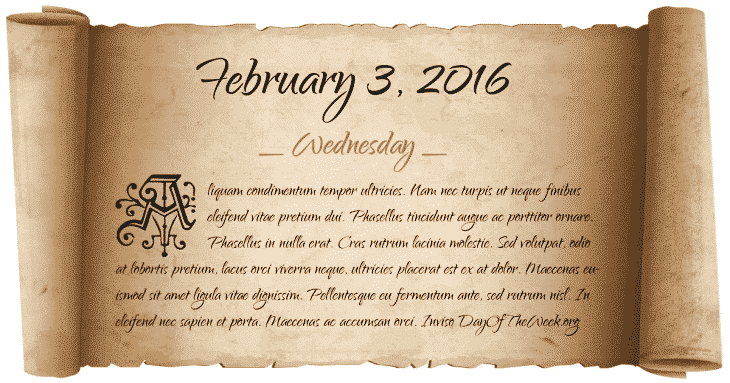 February 3, 2016
— Wednesday —
Aliquam condimentum tempor ultricies. Nam nec turpis ut neque finibus
eleifend vitae pretium dui. Phasellus tincidunt augue ac porttitor ornare.
Phasellus in nulla erat. Cras rutrum lacinia molestie. Sed volutpat, odio
at lobortis pretium, lacus orci viverra neque, ultricies placerat est ex at dolor. Maecenas eu-
ismod sit amet ligula vitae dignissim. Pellentesque eu fermentum ante, sed rutrum nisl. In
eleifend nec sapien et porta. Maecenas ac accumsan orci. Inviso DayOfTheWeek.org